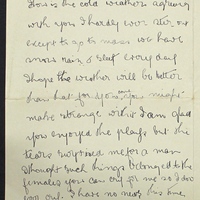 How is the cold weather agreeing
with you I hardly ever stir out
except to go to mass we have
more rain & sleet every day
I hope the weather will be better
than that for you
make strange with I am glad
you enjoyed the plays but the
tears surprised me for a man
I thought such things belonged to the
females you can cry for me so I do
you out. I have no news this time